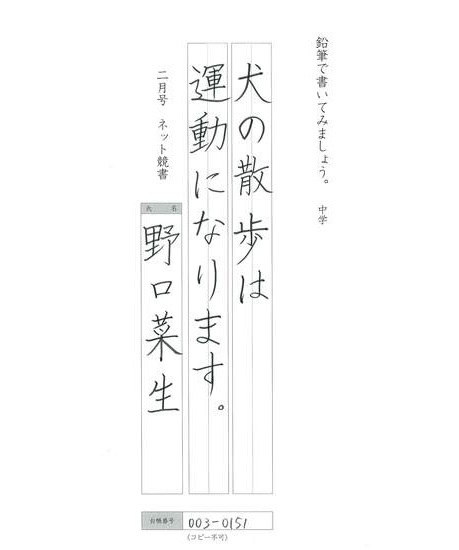 鉛筆で書いてみましょう。 中学
犬の散歩は
運動になります。
二月号 ネット競書
氏名
野口菜生
台帳番号 003-0151
(コピー不可)